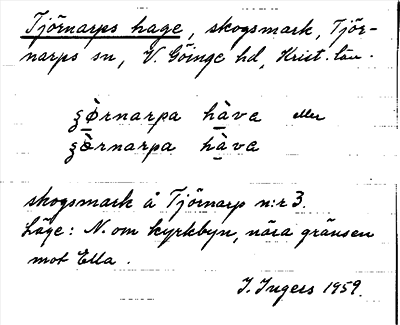 Tjörnarps hage, skogsmark, Tjör-
narps sn, V. Göinge hd, Krist. län.
ʒø̀rnarpa hàva eller
ʒœ̀rnarpa hàva
skogsmark å Tjörnarp n:r 3.
Läge: N. om kyrkbyn, nära gränsen
mot Ella.
I. Ingers 1959.